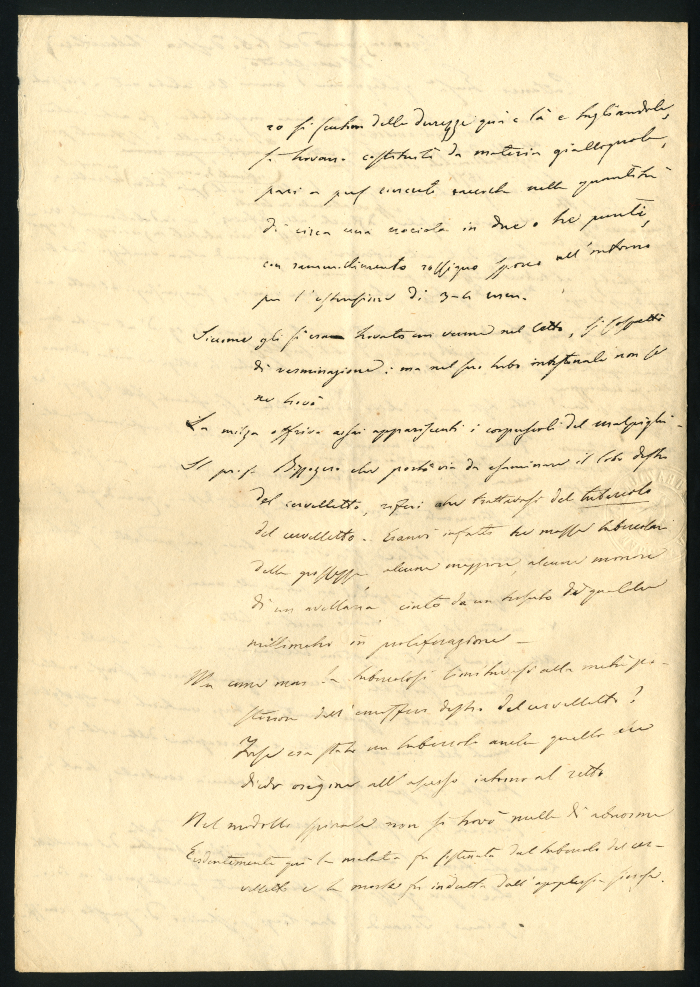 ro si sentiron delle durezze quà e là e tagliandole,
si trovarono costituite da materia giallognola,
pari a pus raccolta nella quantità
di circa una nocciola in due o tre punti,
con rammollimento rossigno sporco all'intorno
per l'estensione di 3-4 mm.
Siccome gli si era trovato un verme nel letto, si sospettò
di verminazione: ma nel suo tubo intestinale non se
ne trovò
La milza offriva assai appariscenti i corpuscoli del Malpighi-
Il prof. Bizzozero che portò via da esaminare il lobo destro
del cervelletto, riferì che trattavasi del tubercolo
del cervelletto. Eranvi infatti tre masse tubercolari
della grossezza, alcune maggiore, alcune minore
di un avellana cinto da un tessuto di qualche
millimetro in proliferazione -
Ma come mai la tubercolosi limitavasi alla metà po-
steriore dell'emisfero destro del cervelletto?
Forse era stato un tubercolo anche quello che
diede origine all'ascesso intorno al retto
Nel midollo spinale non si trovò nulla di abnorme
Evidentemente qui la malattia fu sostenuta dal tubercolo del cer-
velletto e la morte fu indotta dall'apoplessia sierosa.